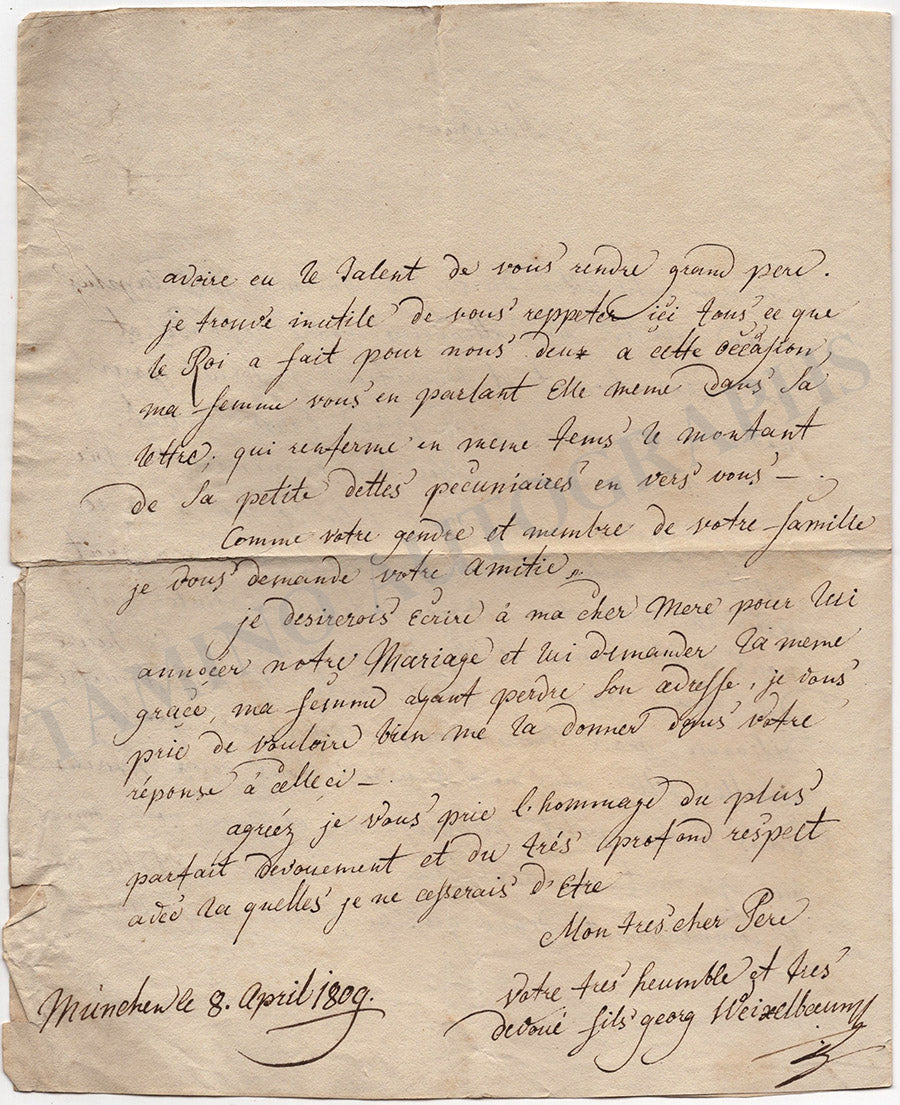 avoire eu le Talent de vous rendre grand pere.
je trouve inutile de vous reppeter ici tous ce que
le Roi a fait pour nous deux a cette occasion,
ma femme vous en parlant Elle meme dans Sa
lettre; qui renferme en meme tems le montant
de Sa petite dettes pecuniaires en vers vous —.
Comme votre gendre et membre de votre famille
je vous demande votre amitie.
je desirerois Ecrire á ma cher Mere pour lui
annocer notre Mariage et lui demander la meme
grace, ma femme ayant perdre Son adresse, je vous
prie de vouloire bien me la donner dans votre
réponse á celleci —.
agréez je vous prie l'hommage du plus
parfait devouement et du trés profond respect
avec la quelles je ne cesserais d'Etre
Mon tres cher Pere
votre tres heumble et tres
devoué fils georg Weixelbaum
München le 8. April 1809.
TAMINO AUTOGRAPHS